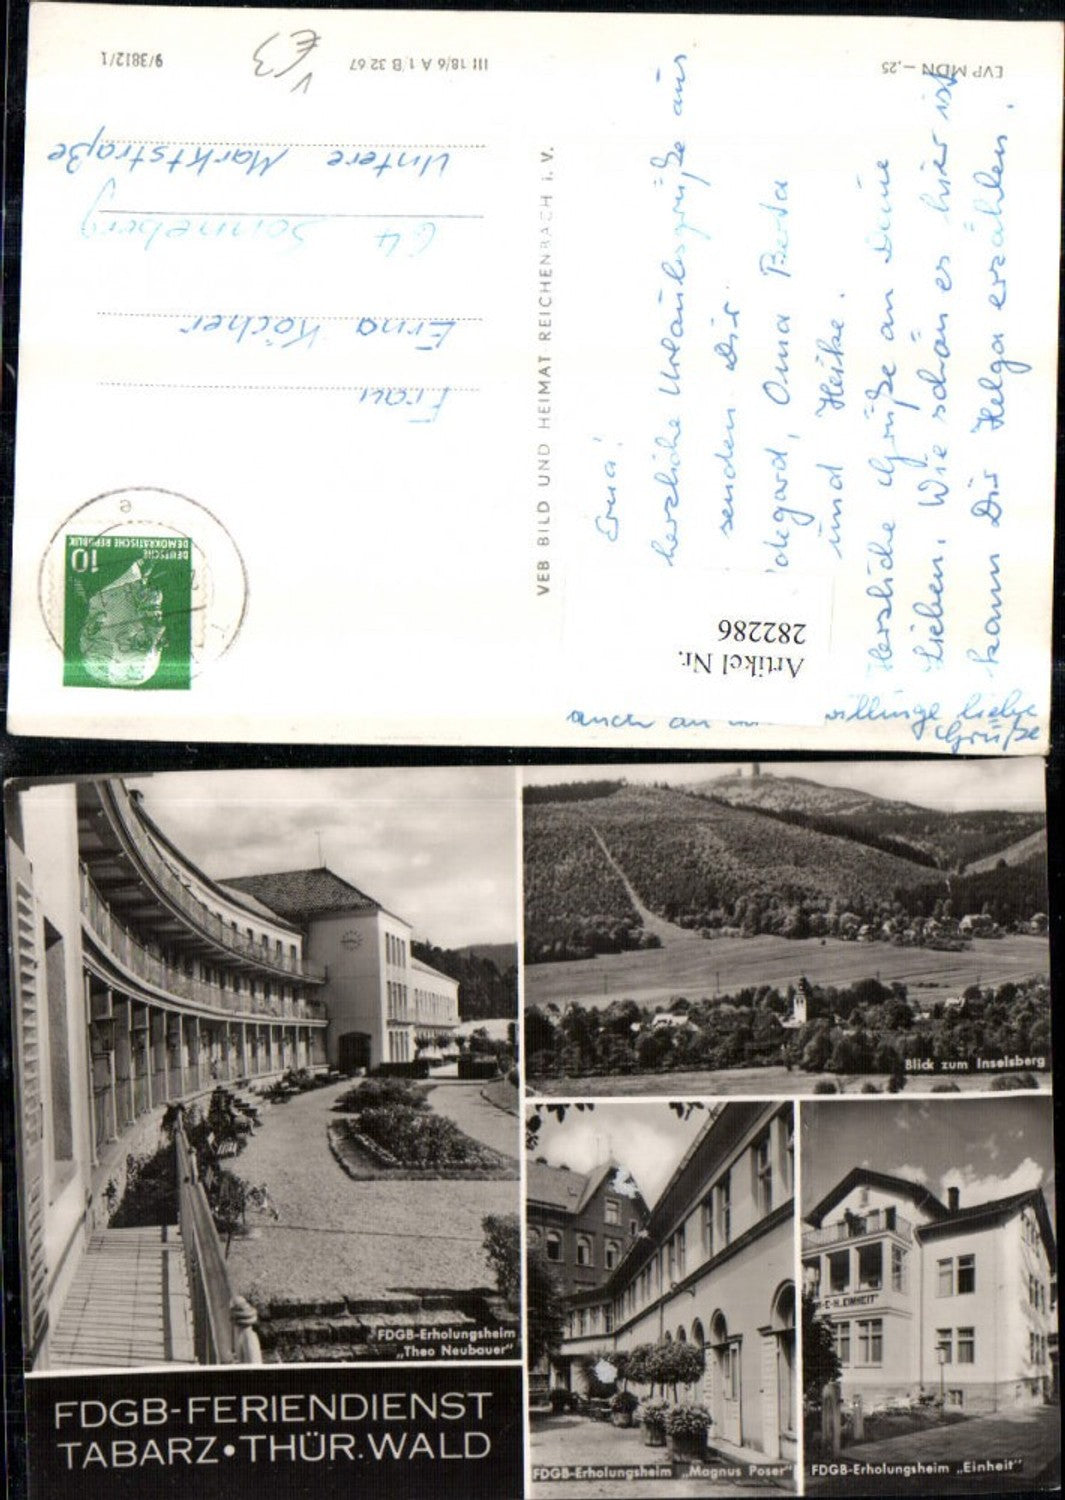 EVP MDN –,25
III 18/6 A 1/B 32 67
9/3812/1
€3
VEB BILD UND HEIMAT REICHENBACH i. V.
DEUTSCHE
DEMOKRATISCHE REPUBLIK
10
e
Frau
Erna Köcher
64 Sonneberg
Untere Marktstraße
Erna!
herzliche Urlaubsgrüße aus
senden Dir
degard, Oma Berta
und Heike.
Herzliche Grüße an Deine
Lieben. Wie schön es hier ist
kann Dir Helga erzählen.
auch an willinge liebe
Grüße
Artikel Nr.
282286
Blick zum Inselsberg
FDGB-Erholungsheim
„Theo Neubauer"
FDGB-FERIENDIENST
TABARZ•THÜR.WALD
FDGB-Erholungsheim „Magnus Poser"
E-H. EINHEIT"
FDGB-Erholungsheim „Einheit"